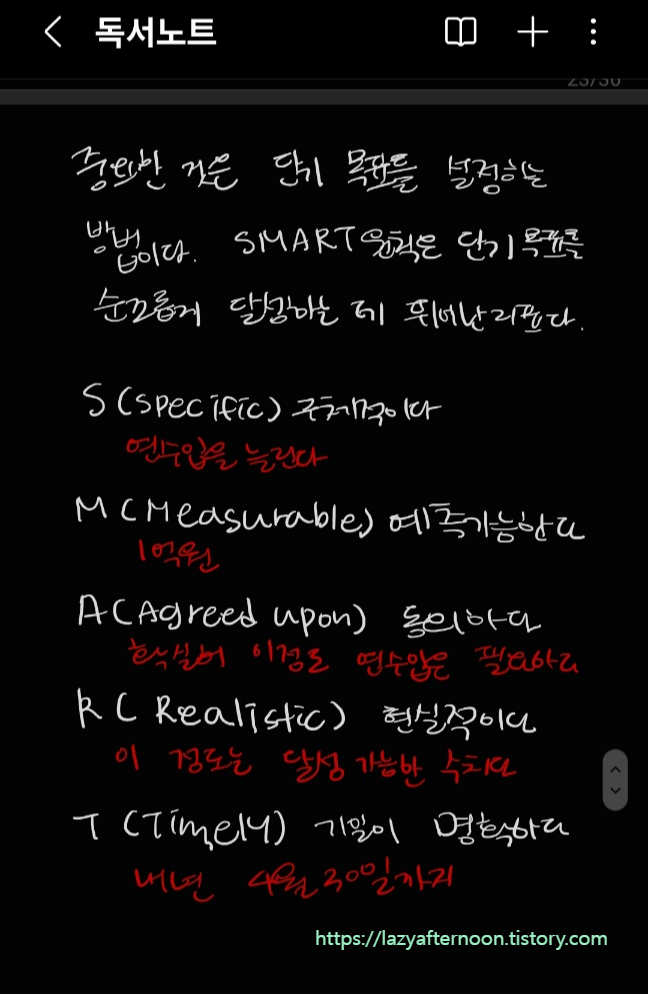 독서노트
23/30
중요한 것은 단기 목표를 설정하는
방법이다. SMART 원칙은 단기 목표를
순조롭게 달성하는 데 뛰어난 리프다.
S (specific) 구체적이다
연수입을 늘린다
M (Measurable) 예측가능하다
1억원
A (Agreed upon) 동의하다
확실히 이정도 연수입은 필요하다
R (Realistic) 현실적이다
이 정도는 달성 가능한 수치다
T (Timely) 기일이 명확하다
내년 4월 30일까지
https://lazyafternoon.tistory.com